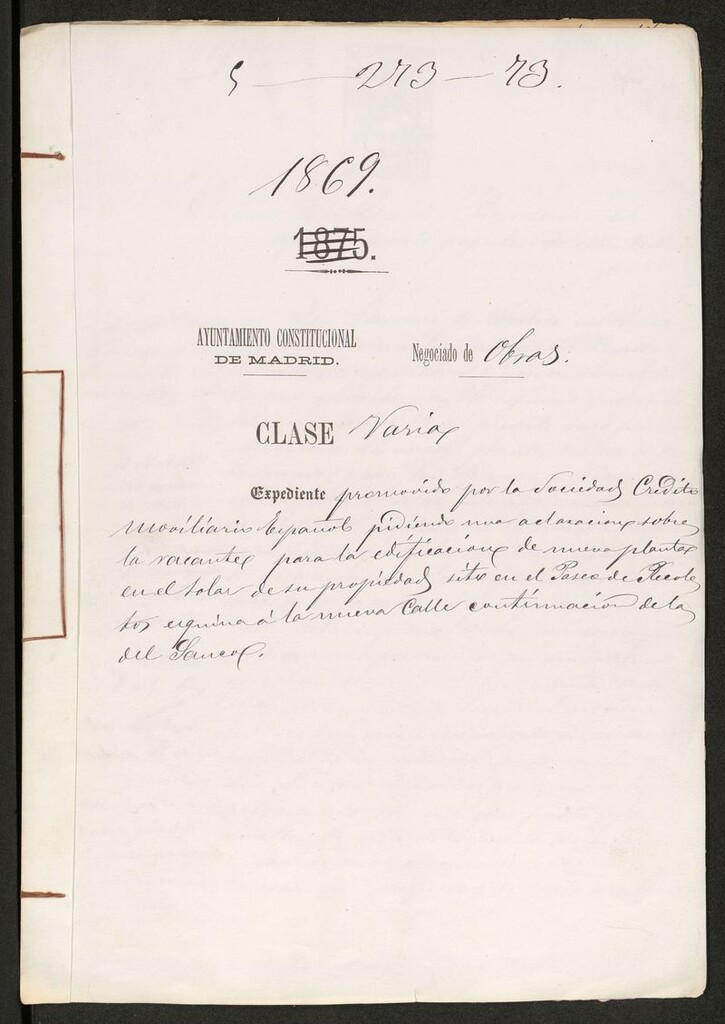 5 — 273 — 73.
1869.
1875.
AYUNTAMIENTO CONSTITUCIONAL
DE MADRID.
Negociado de Obras.
CLASE Varias
Expediente promovido por la Sociedad Credito
moviliario Español pidiendo una aclaracion sobre
la para la edificacion de nueva planta
en el solar de su propiedad sito en el Paseo de Recole
tos esquina á la nueva Calle continuacion de la
del Sauco.